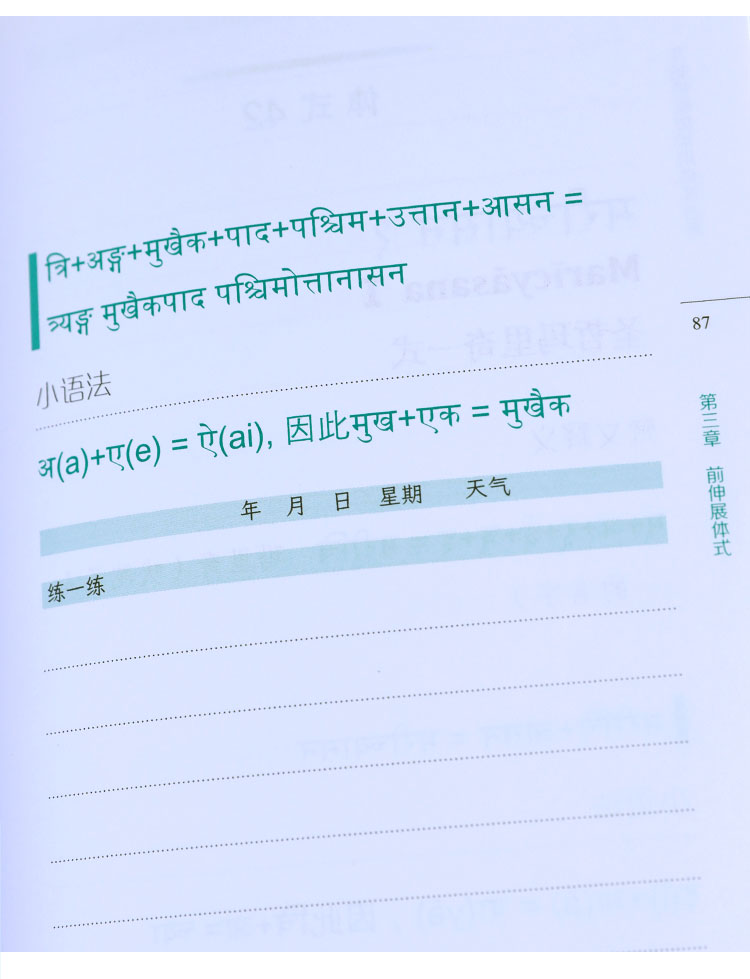 त्रि+अङ्ग+मुखैक+पाद+पश्चिम+उत्तान+आसन =
त्र्यङ्ग मुखैकपाद पश्चिमोत्तानासन
87
小语法
अ(a)+ए(e) = ऐ(ai), 因此मुख+एक = मुखैक
年 月 日 星期 天气
练一练
第三章 前伸展体式